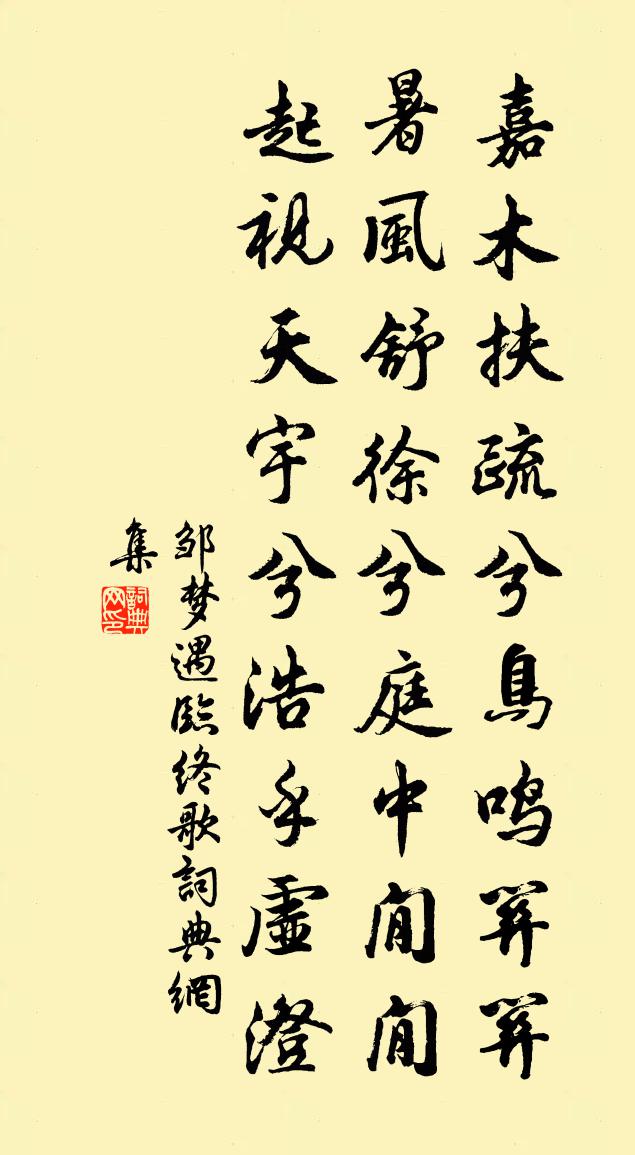 嘉木扶疏兮鳥鳴關關
暑風舒徐兮庭中閒閒
起視天宇兮浩乎虛澄
邹梦遇臨终歌詞典網
集
詞典
网印